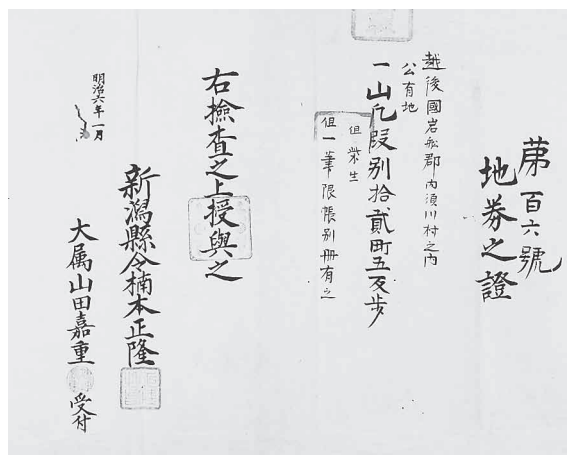 第百六號
地券之證
越後國岩船郡内須川村之内
公有地
一山凡段別拾貳町五反歩
但柴生
但一筆限帳別冊有之
右撿査之上授與之
明治六年一月
新潟縣令楠本正隆
大属山田嘉重 受付